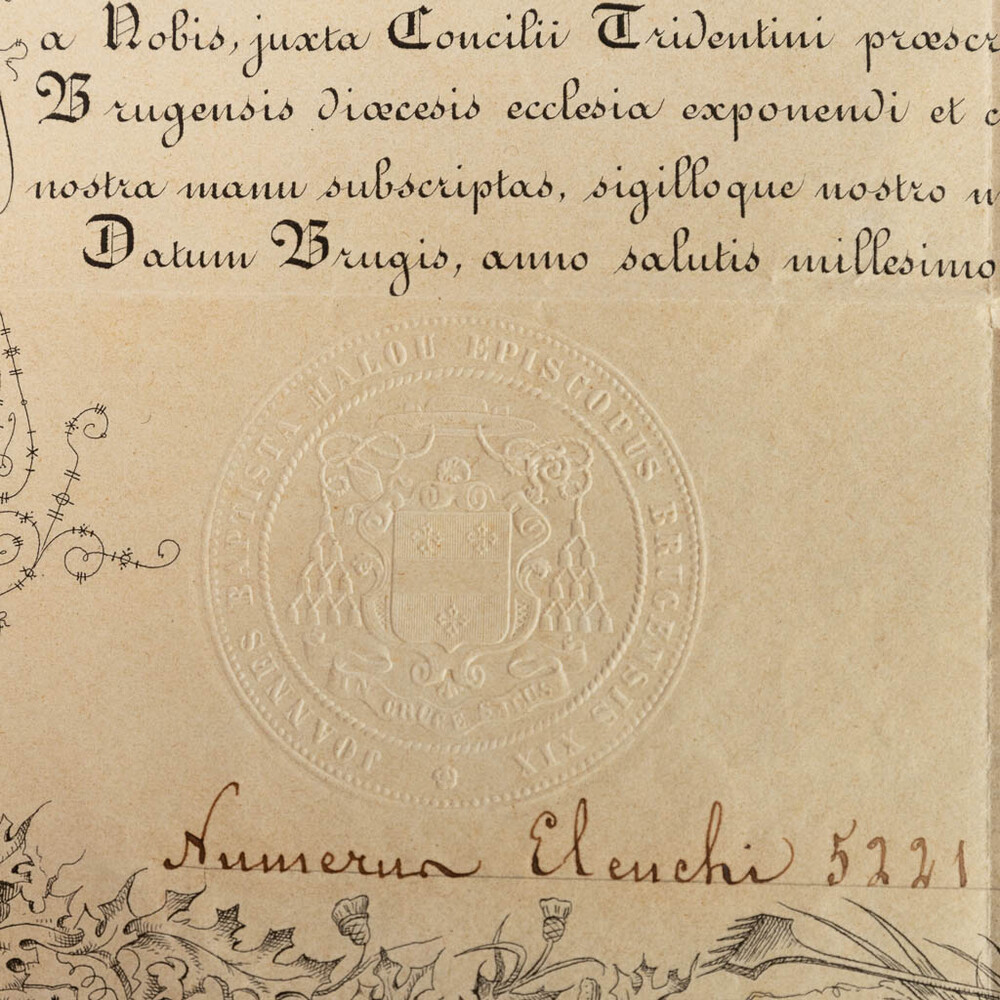 a Nobis, juxta Concilii Tridentini præscr
Brugensis diœcesis ecclesia exponendi et c
nostra manu subscriptas, sigilloque nostro
Datum Brugis, anno salutis millesimo
JOANNES BAPTISTA MALOU EPISCOPUS BRUGENSIS XIX
CRUCE
Numerus Elenchi 5221